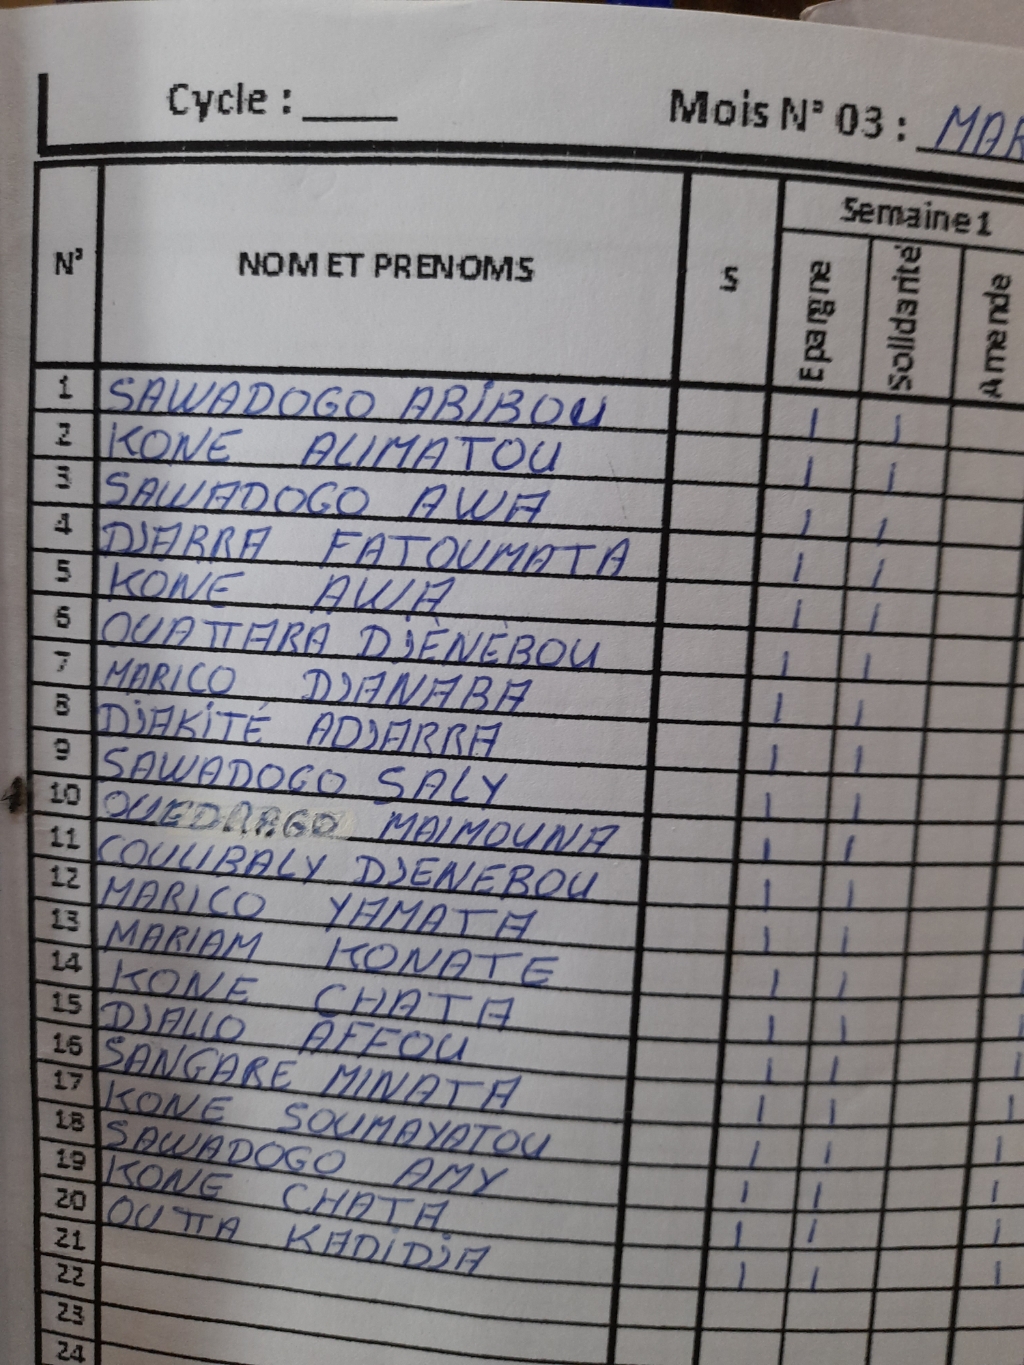 Cycle : ____ Mois N° 03 : MAR
N° NOM ET PRENOMS S Semaine 1
Epargne Solidarité Amende
1 SAWADOGO ABIBOU
2 KONE ALIMATOU
3 SAWADOGO AWA
4 DJARRA FATOUMATA
5 KONE AWA
6 OUATTARA DJÈNÈBOU
7 MARICO DJANABA
8 DJAKITÉ ADJARRA
9 SAWADOGO SALY
10 OUEDRAGO MAIMOUNA
11 COULIBALY DJENEBOU
12 MARICO YAMATA
13 MARIAM KONATE
14 KONE CHATA
15 DJALLO AFFOU
16 SANGARE MINATA
17 KONE SOUMAYATOU
18 SAWADOGO AMY
19 KONE CHATA
20 OUTTA KADIDJA
21
22
23
24